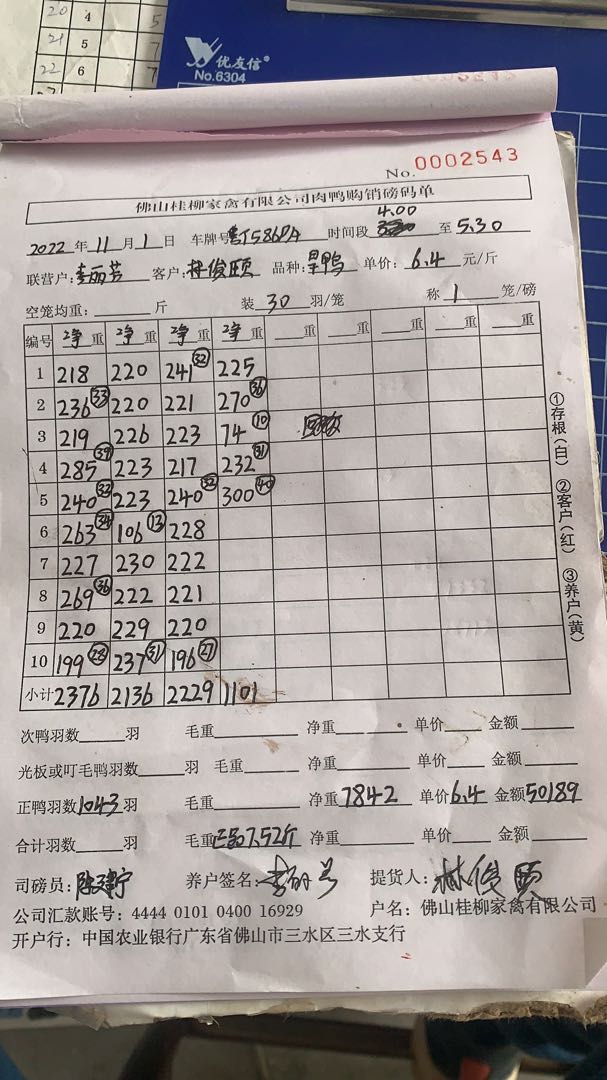 20 4 5
21 5 7
22 6 7
优友信®
No.6304
No. 0002543
佛山桂柳家禽有限公司肉鸭购销磅码单
4.00
2022 年 11 月 1 日 车牌号 时间段 至 5.30
联营户: 李丽芳 客户: 林俊颐 品种: 旱鸭 单价: 6.4 元/斤
空笼均重: 斤 装 30 羽/笼 称 1 笼/磅
编号 净重 净重 净重 净重 重 重 重 重
1 218 220 241 32 225
2 236 33 220 221 270 36
3 219 226 223 74 10
4 285 39 223 217 232 31
5 240 32 223 240 32 300 40
6 263 34 106 13 228
7 227 230 222
8 269 36 222 221
9 220 229 220
10 199 28 237 31 196 27
小计 2376 2136 2229 1101
①存根(白) ②客户(红) ③养户(黄)
次鸭羽数 羽 毛重 净重 单价 金额
光板或叮毛鸭羽数 羽 毛重 净重 单价 金额
正鸭羽数 1043 羽 毛重 净重 7842 单价 6.4 金额 50189
合计羽数 羽 毛重 正品7.52斤 净重 单价 金额
司磅员: 养户签名: 提货人: 林俊颐
公司汇款账号: 4444 0101 0400 16929 户名: 佛山桂柳家禽有限公司
开户行: 中国农业银行广东省佛山市三水区三水支行